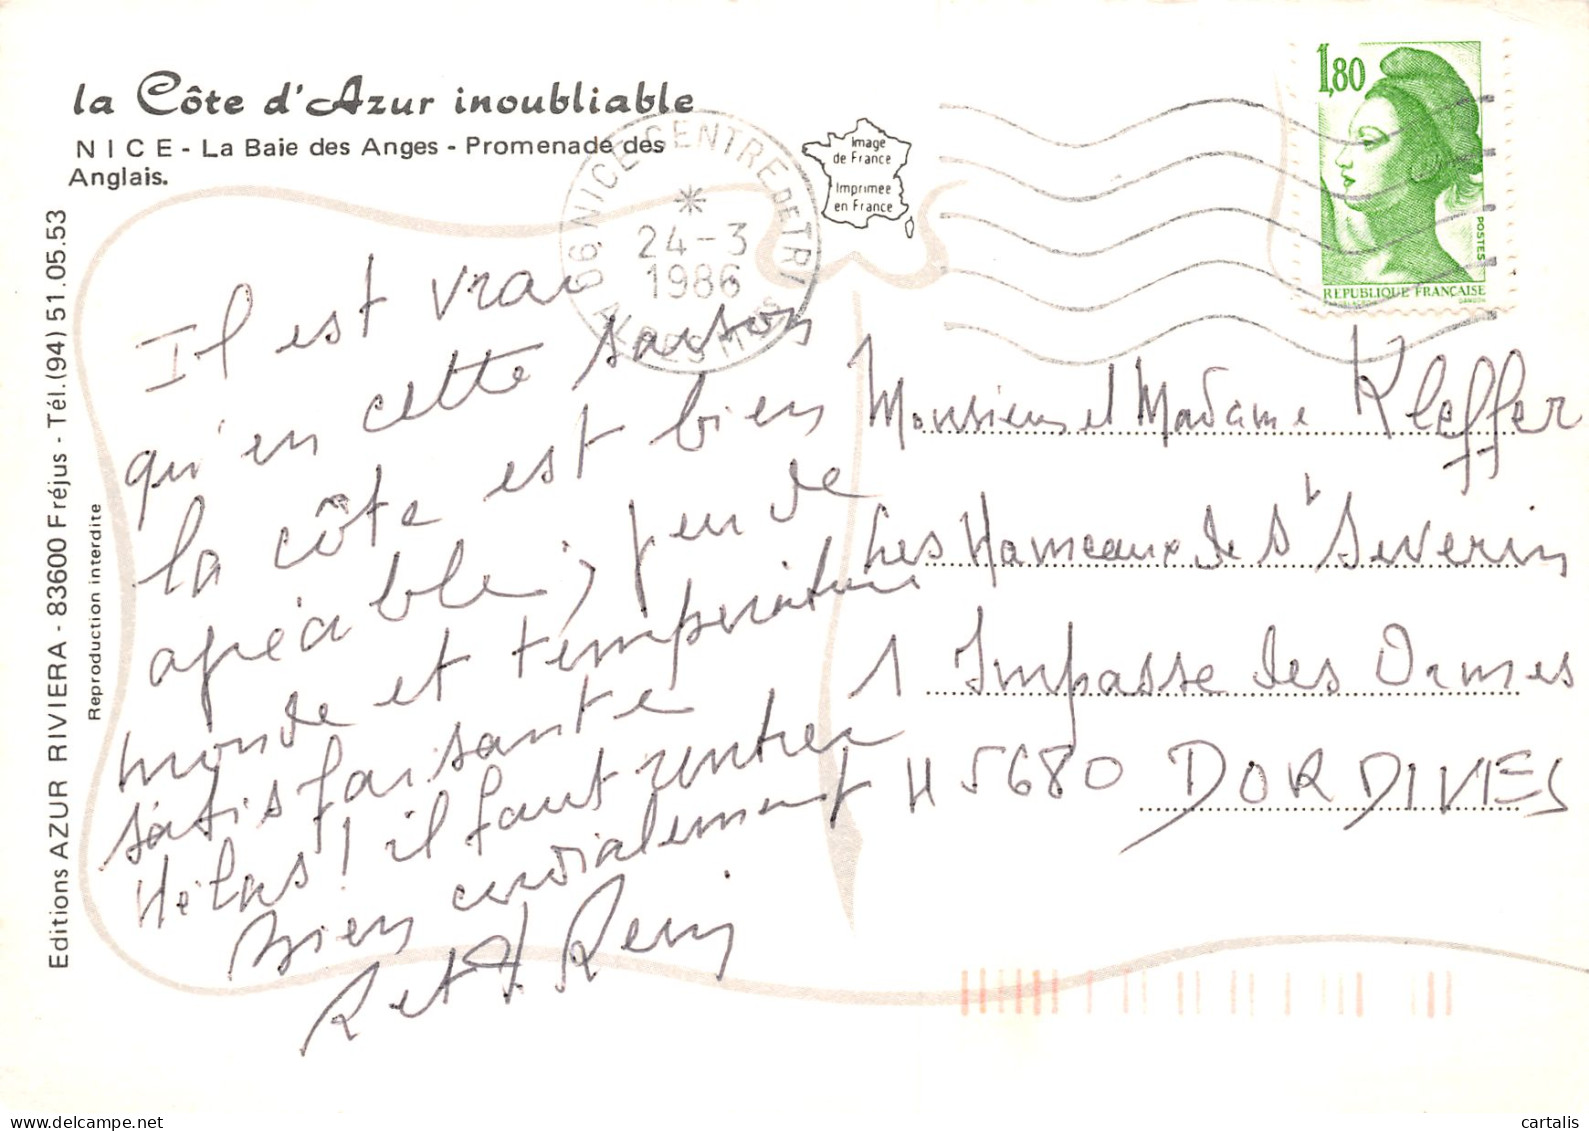 la Côte d'Azur inoubliable
NICE - La Baie des Anges - Promenade des
Anglais.
Editions AZUR RIVIERA - 83600 Fréjus - Tél. (94) 51.05.53
Reproduction interdite
06 NICE CENTRE DE TRI
24-3
1986
ALPES MMES
Image
de France
Imprimée
en France
1,80
POSTES
REPUBLIQUE FRANÇAISE
GANDON
Il est vrai
qu'en cette saison
la côte est bien
agréable ; peu de
monde et température
satisfaisante
Hélas ! il faut rentrer
Bien cordialement
R et
Monsieur et Madame Kleffer
Les Hameaux de St Severin
1 Impasse des Ormes
45680 DORDIVES
cartalis